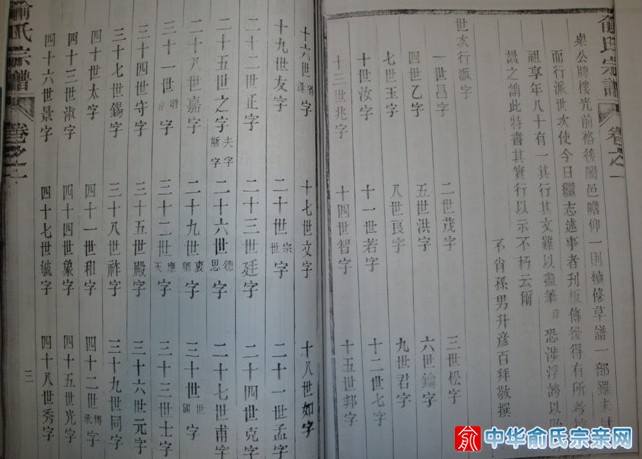 俞氏宗譜 卷之一
公牌樓光前裕後閣邑瞻仰一則補修草譜一部雖未
而行派世次使今日繼志述事者刊板傳後得有所考
祖享年八十有一其行其文難以盡筆 恐涉浮濫以
譏之誚此特書其實行以示不朽云爾
不肖孫男升彥百拜敬撰
世次行派字
一世昌字 二世茂字 三世松字
四世乙字 五世洪字 六世字
七世玉字 八世良字 九世君字
十世汝字 十一世若字 十二世七字
十三世兆字 十四世智字 十五世邦字
十六世字 十七世文字 十八世如字
十九世友字 二十世宗世字 二十一世孟字
二十二世正字 二十三世廷字 二十四世克字
二十五世之字夫字斯字 二十六世德思字 二十七世甫字
二十八世嘉字 二十九世字 三十世世國字
三十一世字 三十二世應天字 三十三世士字
三十四世守字 三十五世殿字 三十六世元字
三十七世錫字 三十八世祚字 三十九世同字
四十世太字 四十一世和字 四十二世字
四十三世淑字 四十四世象字 四十五世光字
四十六世景字 四十七世毓字 四十八世秀字
俞氏宗譜 卷之一
俞 中华俞氏宗亲网